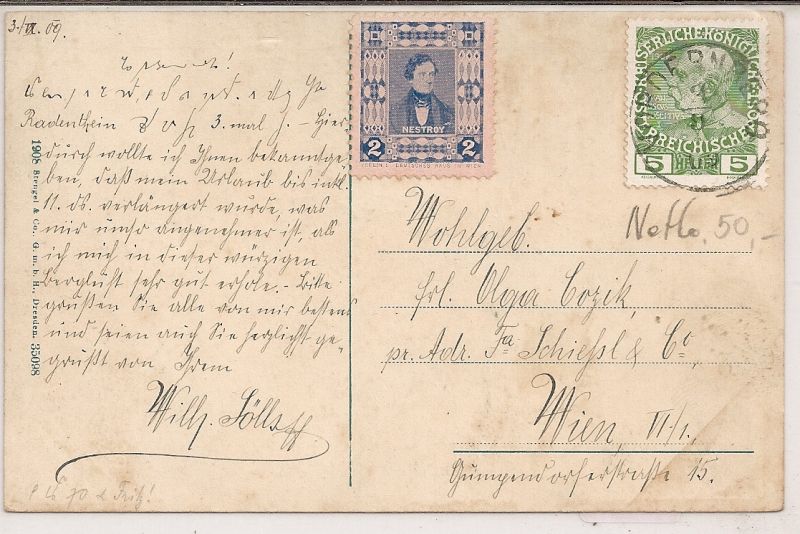 3./IX. 09.
Radenthein 3. mal
Hier
durch wollte ich Ihnen bekanntge-
ben, daß mein Urlaub bis inkl.
11. ds. verlängert wurde, was
mir umso angenehmer ist, als
ich mich in dieser würzigen
Bergluft sehr gut erhole. – Bitte
grüßen Sie alle von mir bestens
und seien auch Sie herzlichst ge-
grüßt von Ihrem
Wilh.
1908 Stengel & Co., G. m. b. H., Dresden. 35098
2 NESTROY 2
VEREIN: DEUTSCHES HAUS WIEN
KAISERLICHE KÖNIGLICHE ÖSTERREICHISCHE
5 5
Netto 50,-
Wohlgeb.
Frl. Olga Cozik,
pr. Adr. Fa Schießl & Co,
Wien, VI/1.
Gumpendorferstraße 15.